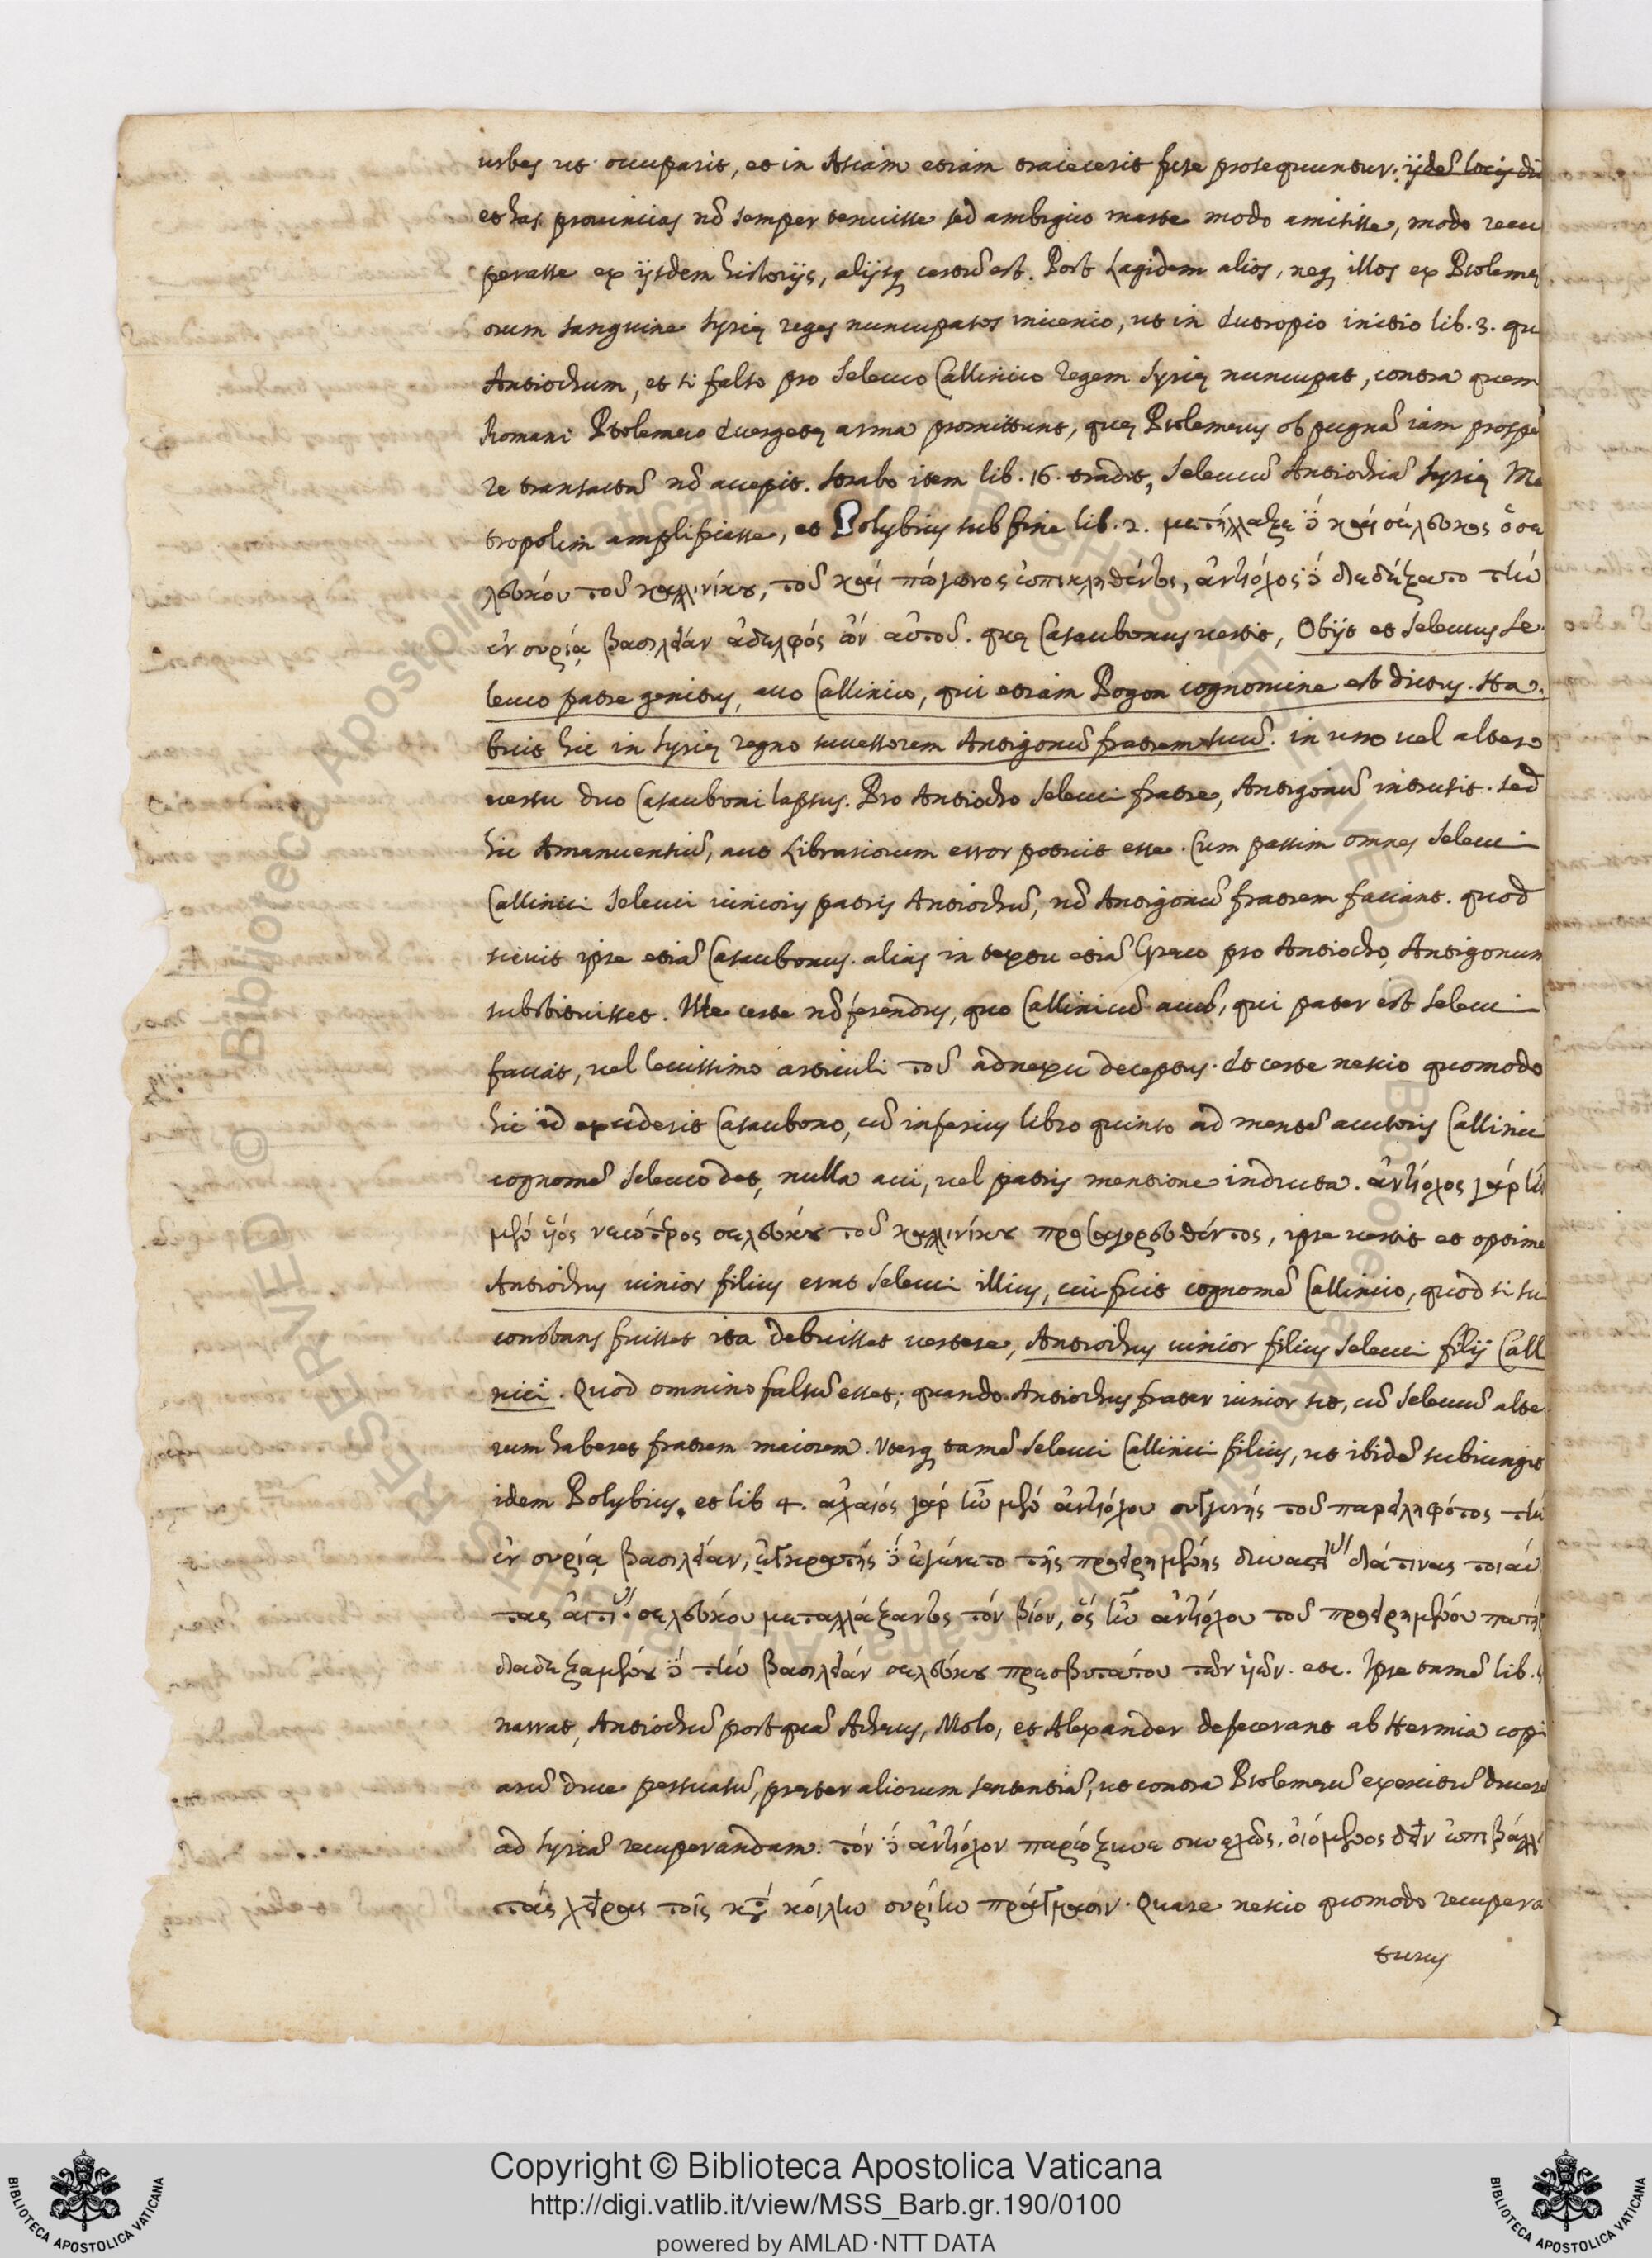 urbes ut occuparit, et in Asiam etiam traiecerit fuse prosequuntur. ijdē locis
et has prouincias nō semper tenuisse sed ambiguo marte modo amisisse, modo recu
perasse ex ijsdem historijs, alijsq certū est. Post Lagidem alios, neq illos ex Ptolemę
orum sanguine Syrię reges nuncupatos inuenio, ut in Eutropio initio lib. 3. qu
Antiochum, et si falso pro Seleuco Callinico regem Syrię nuncupat, contra quem
Romani Ptolemeo Euergetę arma promittunt, quę Ptolemeus ob pugnā iam prospe
re transactā nō accepit. Strabo item lib. 16. tradit, Seleucū Antiochiā Syrię Me
tropolim amplificasse, et Polybius sub fine lib. 2. μετήλλαξε δὲ καὶ σέλευκος ὁ σε
λεύκου τοῦ καλλινίκου, τοῦ καὶ πώγωνος ἐπικληθέντος, ἀντίοχος δὲ διεδέξατο τὴν
ἐν συρίᾳ βασιλείαν ἀδελφός ὢν αὐτοῦ. quę Casaubonus uertit, Obijt et Seleucus Se
leuco patre genitus, auo Callinico, qui etiam Pogon cognomine est dictus. Ha
buit hic in Syrię regno successorem Antigonū fratrem suū. in uno uel altero
uersu duo Casauboni lapsus. Pro Antiocho Seleuci fratre, Antigonū intrusit. sed
hic Amanuensiū, aut Librariorum error potuit esse. Cum passim omnes Seleuci
Callinici Seleuci iunioris patris Antiochū, nō Antigonū fratrem faciant. quod
sciuit ipse etiā Casaubonus. alias in textu etiā Greco pro Antiocho, Antigonum
substituisset. Ille certe nō ferendus, quo Callinicū auū, qui pater est Seleuci
faciat, uel leuissimo articuli τοῦ adnexu deceptus. Et certe nescio quomodo
hic id exciderit Casaubono, cū inferius libro quinto ad mentē auctoris Callinici
cognomē Seleuco det, nulla aui, uel patris mentione inducta. ἀντίοχος γάρ ἦν
μὲν υἱός νεώτερος σελεύκου τοῦ καλλινίκου προσαγορευθέντος, ipse uertit et optime
Antiochus iunior filius erat Seleuci illius, cui fuit cognomē Callinico, quod si su
constans fuisset ita debuisset uertere, Antiochus iunior filius Seleuci filij Call
nici. Quod omnino falsū esset; quando Antiochus frater iunior sit, cū Seleucū alte
rum haberet fratrem maiorem. Uterq tamē Seleuci Callinici filius, ut ibidē subiungit
idem Polybius. et lib 4. ἀχαιός γάρ ἦν μὲν ἀντιόχου συγγενής τοῦ παρειληφότος τὴν
ἐν συρίᾳ βασιλείαν, ἐγκρατής δὲ ἐγένετο τῆς προειρημένης δυναστείας διά τινας τοιαύ
τας αἰτίας. σελεύκου μεταλλάξαντος τόν βίον, ὅς ἦν ἀντιόχου τοῦ προειρημένου πατήρ
διαδεξαμένου δὲ τὴν βασιλείαν σελεύκου πρεσβυτάτου τῶν υἱῶν. etc. Ipse tamē lib.
narrat, Antiochū postquā Acheus, Molo, et Alexander defecerant ab Hermia copi
arū duce persuasū, pręter aliorum sententiā, ut contra Ptolemeū exercitū duceret
ad Syriā recuperandam. τόν δὲ ἀντίοχον παρώξυνε συνεχῶς, οἰόμενος δεῖν ἐπιβάλλειν
τάς χεῖρας τοῖς κατὰ κοίλην συρίαν πράγμασιν. Quare nescio quomodo recupera
turus
Copyright © Biblioteca Apostolica Vaticana
http://digi.vatlib.it/view/MSS_Barb.gr.190/0100
powered by AMLAD·NTT DATA
BIBLIOTECA APOSTOLICA VATICANA
BIBLIOTECA APOSTOLICA VATICANA